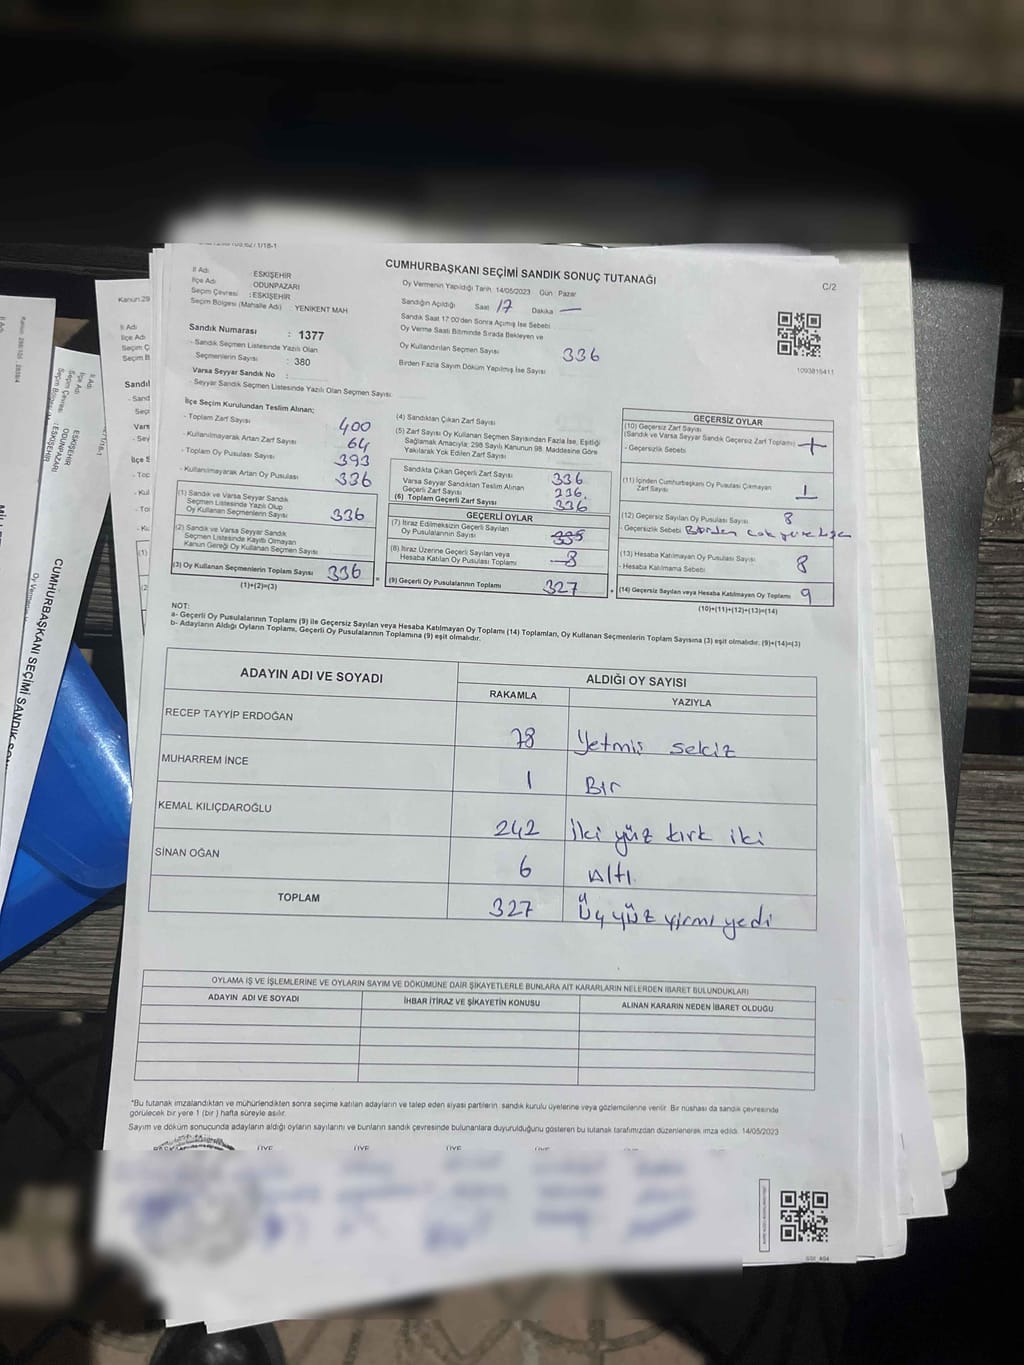 CUMHURBAŞKANI SEÇİMİ SANDIK SONUÇ TUTANAĞI
C/2
İl Adı : ESKİŞEHİR
İlçe Adı : ODUNPAZARI
Seçim Çevresi : ESKİŞEHİR
Seçim Bölgesi (Mahalle Adı) : YENİKENT MAH
Sandık Numarası : 1377
- Sandık Seçmen Listesinde Yazılı Olan
Seçmenlerin Sayısı : 380
Varsa Seyyar Sandık No :
- Seyyar Sandık Seçmen Listesinde Yazılı Olan Seçmen Sayısı:
Oy Vermenin Yapıldığı Tarih: 14/05/2023 Gün : Pazar
Sandığın Açıldığı Saat 17 Dakika —
Sandık Saat 17:00'den Sonra Açılmış İse Sebebi
Oy Verme Saati Bitiminde Sırada Bekleyen ve
Oy Kullandırılan Seçmen Sayısı 336
Birden Fazla Sayım Döküm Yapılmış İse Sayısı
1093815411
İlçe Seçim Kurulundan Teslim Alınan;
- Toplam Zarf Sayısı 400
- Kullanılmayarak Artan Zarf Sayısı 64
- Toplam Oy Pusulası Sayısı 393
- Kullanılmayarak Artan Oy Pusulası 336
(1) Sandık ve Varsa Seyyar Sandık
Seçmen Listesinde Yazılı Olup
Oy Kullanan Seçmenlerin Sayısı 336
(2) Sandık ve Varsa Seyyar Sandık
Seçmen Listesinde Kayıtlı Olmayan
Kanun Gereği Oy Kullanan Seçmen Sayısı
(3) Oy Kullanan Seçmenlerin Toplam Sayısı 336
(1)+(2)=(3)
(4) Sandıktan Çıkan Zarf Sayısı
(5) Zarf Sayısı Oy Kullanan Seçmen Sayısından Fazla İse, Eşitliği
Sağlamak Amacıyla; 298 Sayılı Kanunun 98. Maddesine Göre
Yakılarak Yok Edilen Zarf Sayısı
Sandıkta Çıkan Geçerli Zarf Sayısı 336
Varsa Seyyar Sandıktan Teslim Alınan
Geçerli Zarf Sayısı
(6) Toplam Geçerli Zarf Sayısı 336
GEÇERLİ OYLAR
(7) İtiraz Edilmeksizin Geçerli Sayılan
Oy Pusulalarının Sayısı
(8) İtiraz Üzerine Geçerli Sayılan veya
Hesaba Katılan Oy Pusulası Toplamı
(9) Geçerli Oy Pusulalarının Toplamı 327
GEÇERSİZ OYLAR
(10) Geçersiz Zarf Sayısı
(Sandık ve Varsa Seyyar Sandık Geçersiz Zarf Toplamı)
- Geçersizlik Sebebi
(11) İçinden Cumhurbaşkanı Oy Pusulası Çıkmayan
Zarf Sayısı 1
(12) Geçersiz Sayılan Oy Pusulası Sayısı 8
- Geçersizlik Sebebi
(13) Hesaba Katılmayan Oy Pusulası Sayısı 8
- Hesaba Katılmama Sebebi
(14) Geçersiz Sayılan veya Hesaba Katılmayan Oy Toplamı 9
(10)+(11)+(12)+(13)=(14)
NOT:
a- Geçerli Oy Pusulalarının Toplamı (9) ile Geçersiz Sayılan veya Hesaba Katılmayan Oy Toplamı (14) Toplamları, Oy Kullanan Seçmenlerin Toplam Sayısına (3) eşit olmalıdır. (9)+(14)=(3)
b- Adayların Aldığı Oyların Toplamı, Geçerli Oy Pusulalarının Toplamına (9) eşit olmalıdır.
ADAYIN ADI VE SOYADI ALDIĞI OY SAYISI
RAKAMLA YAZIYLA
RECEP TAYYİP ERDOĞAN 78 Yetmiş sekiz
MUHARREM İNCE 1 Bir
KEMAL KILIÇDAROĞLU 242 İki yüz kırk iki
SİNAN OĞAN 6 Altı
TOPLAM 327 Üç yüz yirmi yedi
OYLAMA İŞ VE İŞLEMLERİNE VE OYLARIN SAYIM VE DÖKÜMÜNE DAİR ŞİKAYETLERLE BUNLARA AİT KARARLARIN NELERDEN İBARET BULUNDUKLARI
ADAYIN ADI VE SOYADI İHBAR İTİRAZ VE ŞİKAYETİN KONUSU ALINAN KARARIN NEDEN İBARET OLDUĞU
*Bu tutanak imzalandıktan ve mühürlendikten sonra seçime katılan adayların ve talep eden siyasi partilerin sandık kurulu üyelerine veya gözlemcilerine verilir. Bir nüshası da sandık çevresinde
görülecek bir yere 1 (bir) hafta süreyle asılır.
Sayım ve döküm sonucunda adayların aldığı oyların sayılarını ve bunların sandık çevresinde bulunanlara duyurulduğunu gösteren bu tutanak tarafımızdan düzenlenerek imza edildi. 14/05/2023